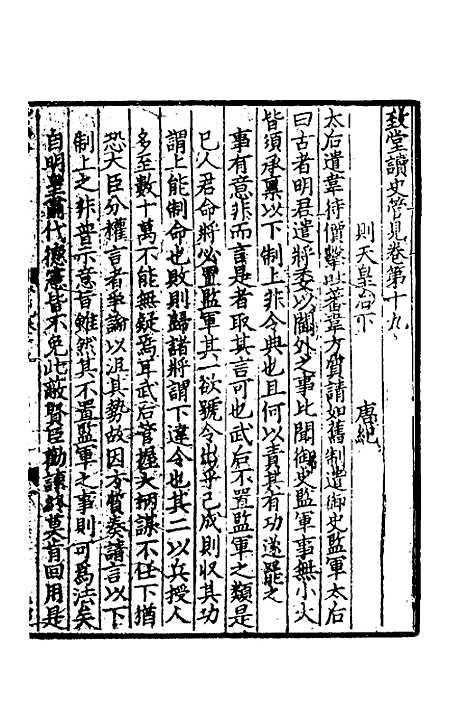 致堂讀史管見卷第十九
則天皇后下　唐紀
太后遣韋待價擊吐蕃韋方質請如舊制遣御史監軍太后
曰古者明君遣將委以閫外之事比聞御史監軍事無小大
皆須承稟以下制上非令典也且何以責其有功遂罷之
事有意非而言是者取其言可也武后不置監軍之類是
已人君命將必置監軍其一欲號令出乎己成則收其功
謂上能制命也敗則歸諸將謂下違令也其二以兵授人
多至數十萬不能無疑焉耳武后管握大柄謀不任下猶
恐大臣分權言者爭論以沮其勢故因方質奏請言以下
制上之非普示意旨雖然其不置監軍之事則可為法矣
自明皇肅代德憲皆不免此蔽賢臣勸諫終莫肯回用是